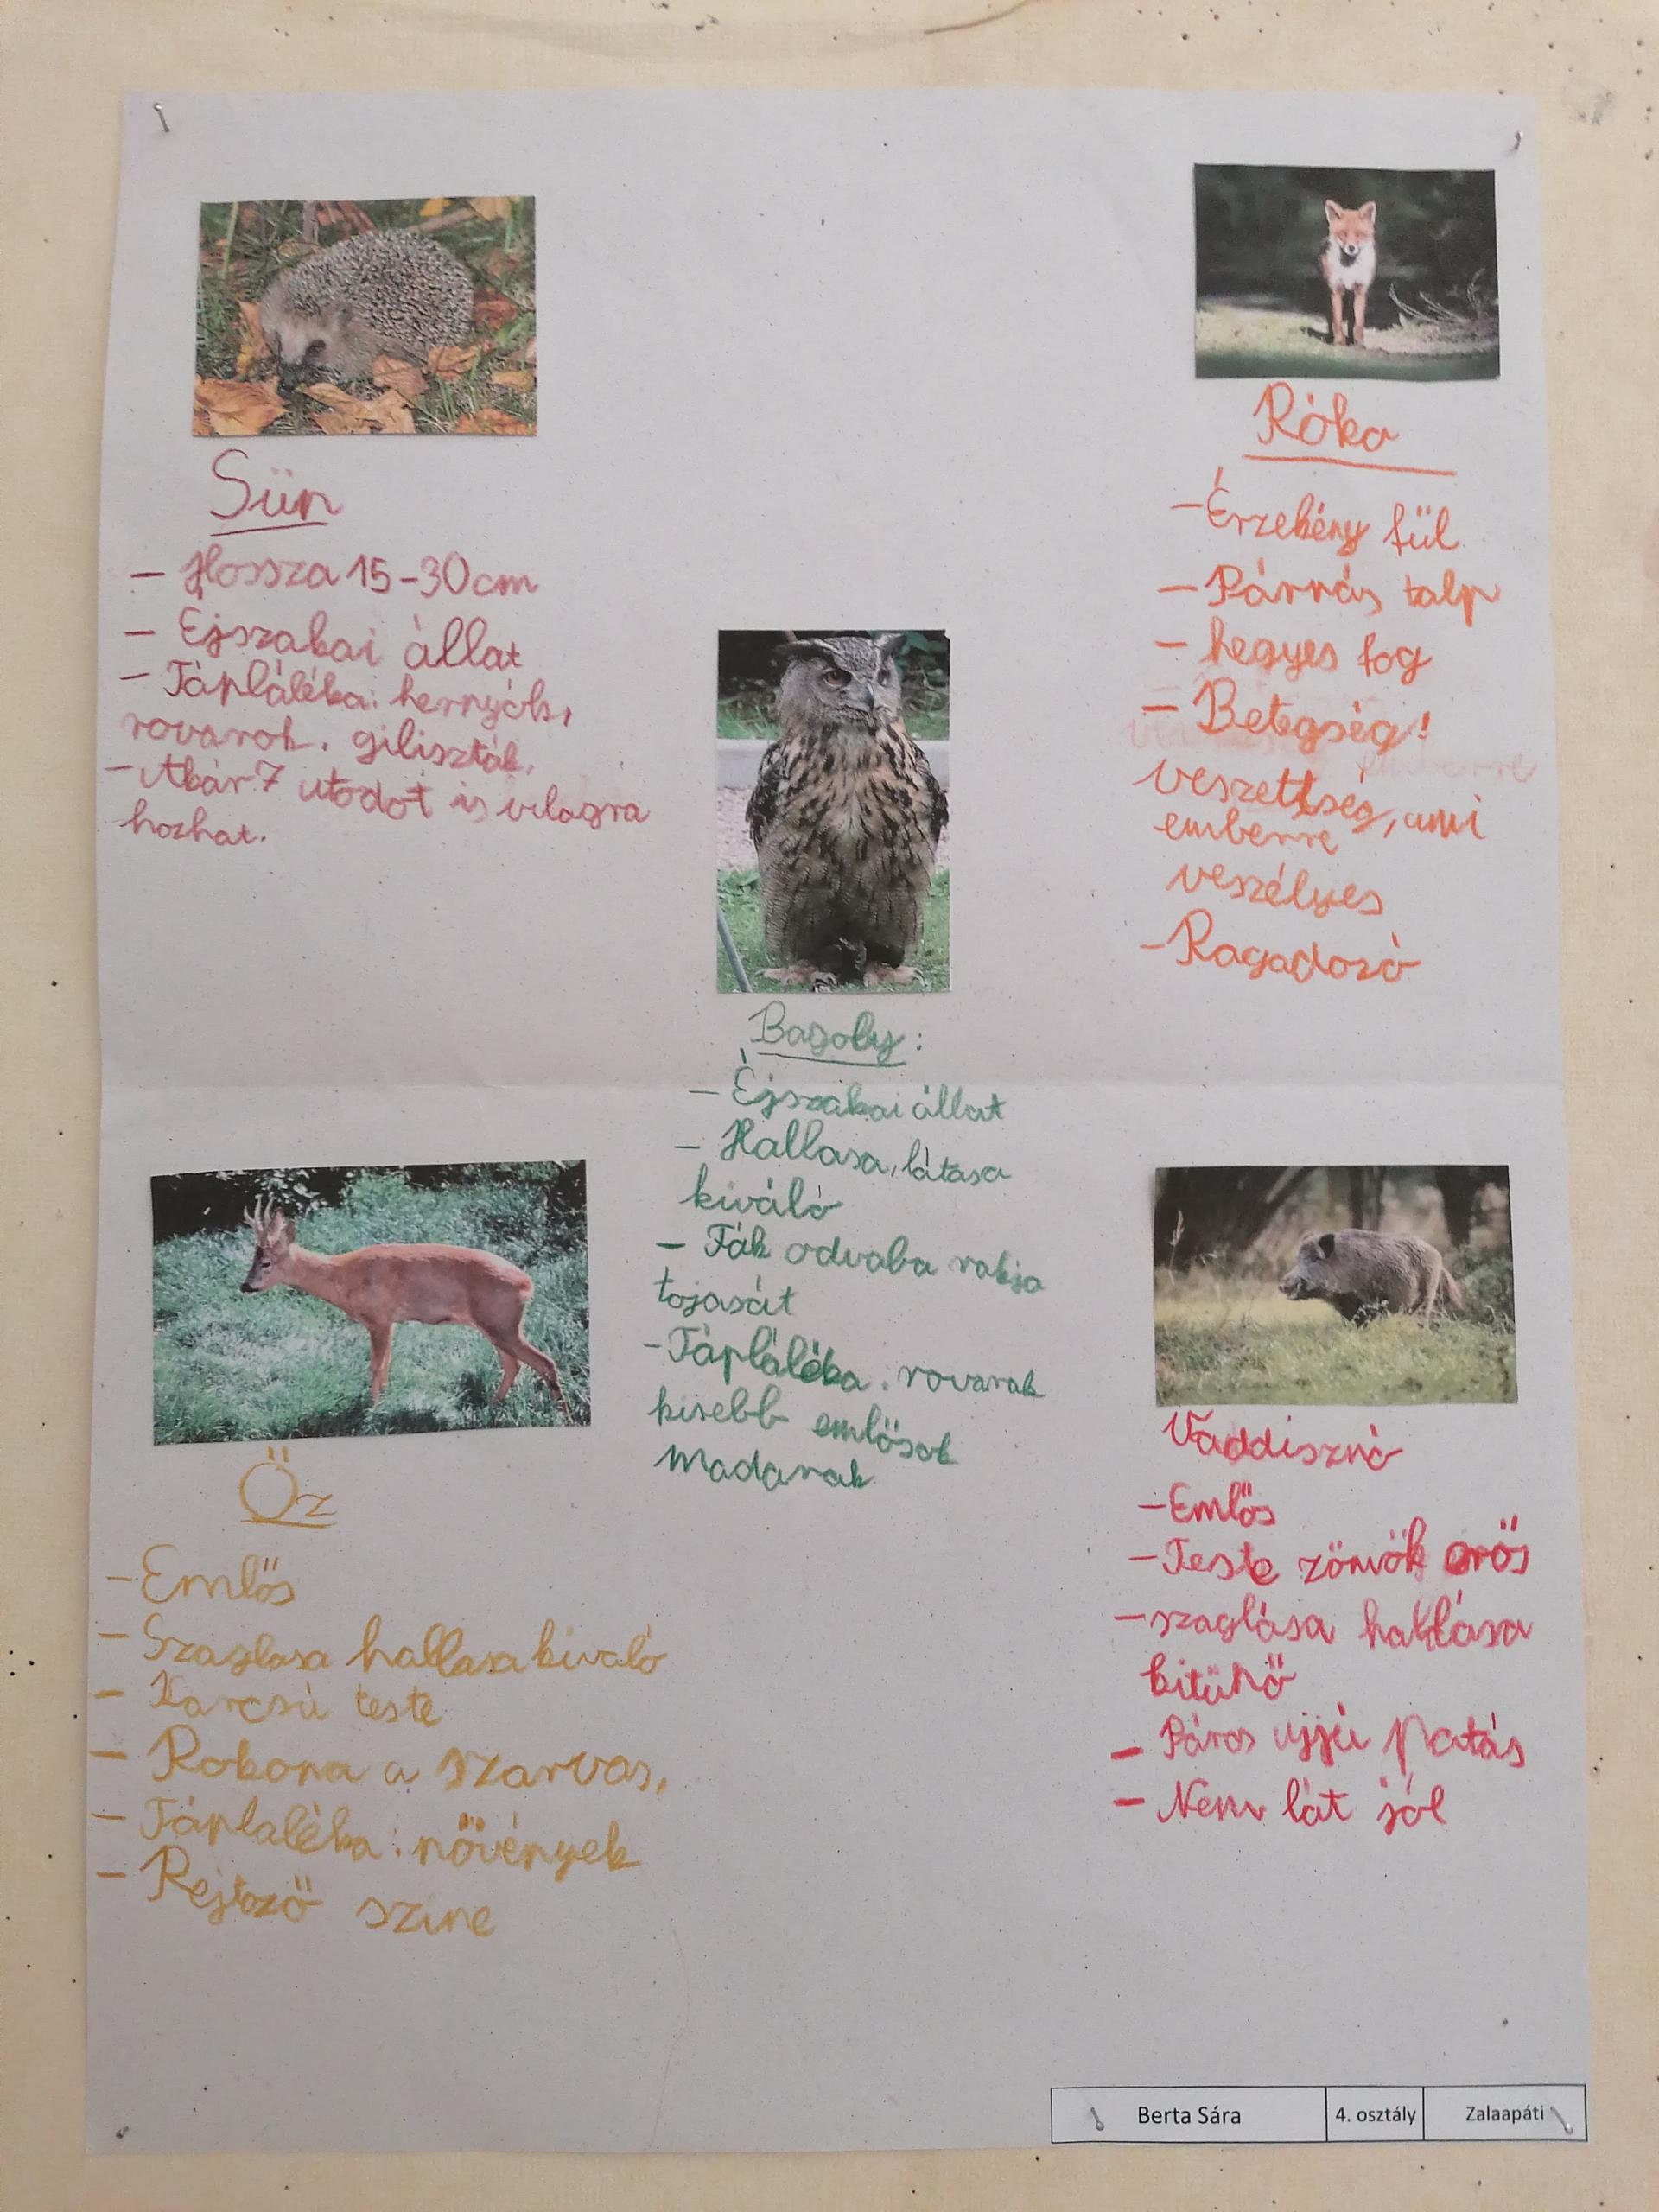 Sün
- Hossza 15-30cm
- Éjszakai állat
- Tápláléka: hernyók,
rovarok, giliszták,
- Akár 7 utódot is világra
hozhat.
Róka
- Érzekény fül
- Párnás talp
- hegyes fog
- Betegség!
veszettség, ami
emberre
veszélyes
- Ragadozó
Bagoly:
- Éjszakai állat
- Hallása, látása
kiváló
- Fák odvaba rakja
tojasát
- Tápláléka: rovarok
kisebb emlősök
madarak
Őz
- Emlős
- Szaglasa hallasa kivaló
- Karcsú teste
- Rokona a szarvas,
- Táplaléka: növények
- Rejtőző szine
Vaddisznó
- Emlős
- Teste zömök erős
- szaglása hallása
kitünő
- Páros ujjú patás
- Nem lát jól
Berta Sára
4. osztály
Zalaapáti